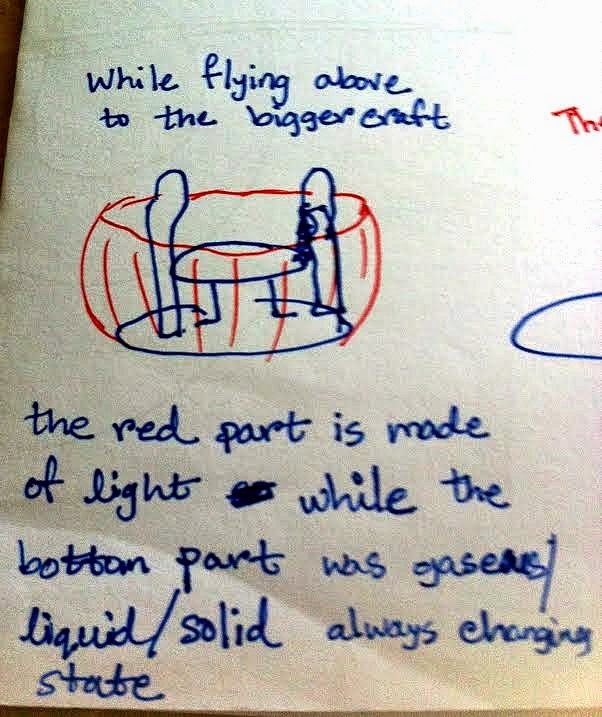 While flying above
to the bigger craft
The
the red part is made
of light while the
bottom part was gaseous/
liquid/solid always changing
state